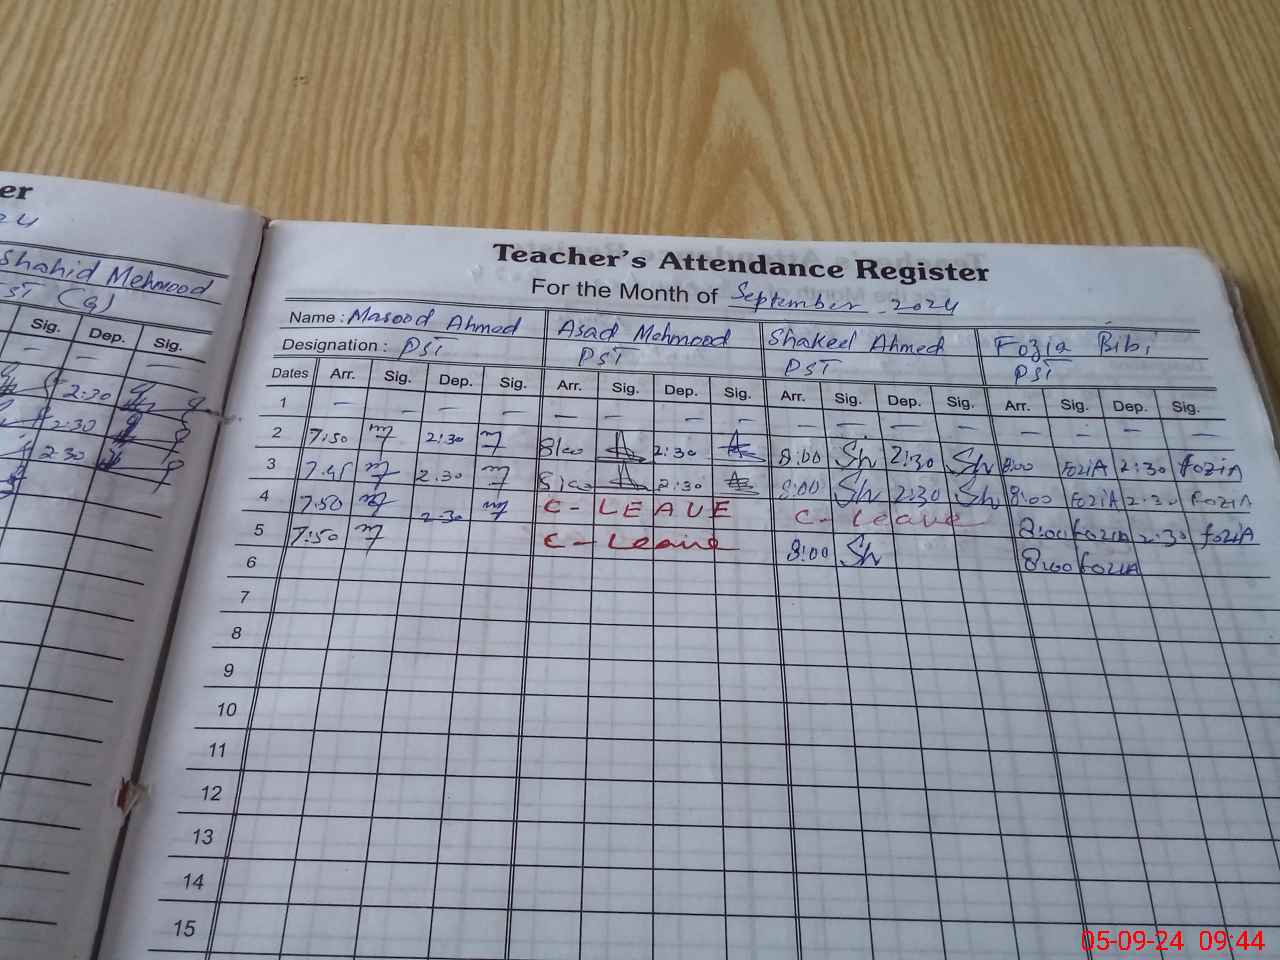 er
24
Shahid Mehmood
PST (G)
Sig. Dep. Sig.
— — —
2:30
2:30
2:30
Teacher's Attendance Register
For the Month of September 2024
Name : Masood Ahmed Asad Mehmood Shakeel Ahmed Fozia Bibi
Designation : PST PST PST PST
Dates Arr. Sig. Dep. Sig. Arr. Sig. Dep. Sig. Arr. Sig. Dep. Sig. Arr. Sig. Dep. Sig.
1 — — — — — — — — — — — — — — — —
2 7:50 m 2:30 m 8:00 2:30 8:00 Sh 2:30 Sh 8:00 FoziA 2:30 foziA
3 7.45 m 2.30 m 8:00 2:30 8:00 Sh 2:30 Sh 8:00 FoziA 2:30 FoziA
4 7.50 m 2:30 m C - LEAVE C - Leave 8:00 foziA 2:30 foziA
5 7:50 m C - Leave 8:00 Sh 8:00 foziA
6
7
8
9
10
11
12
13
14
15
05-09-24 09:44